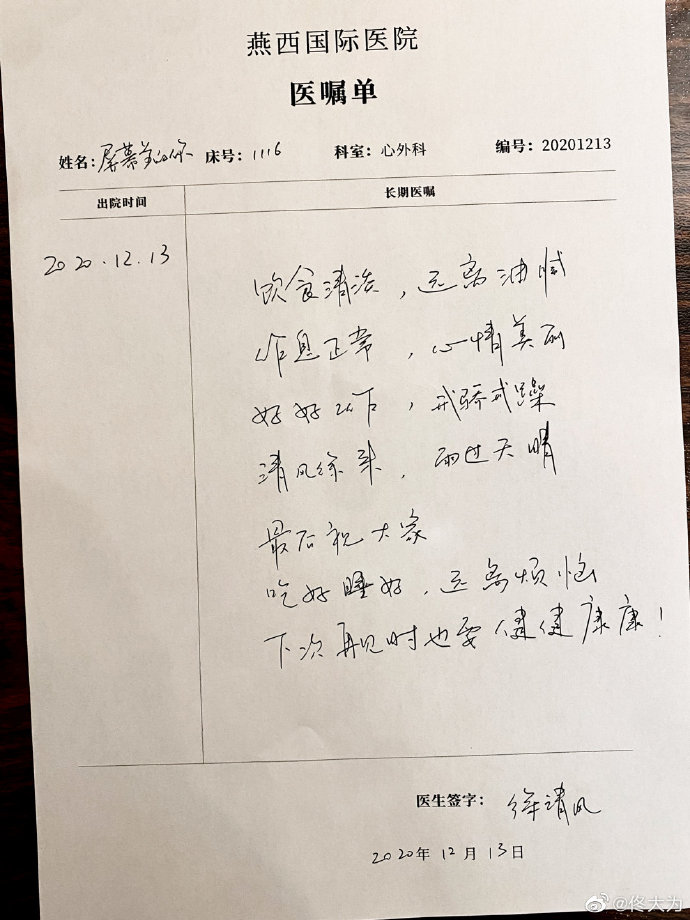 燕西国际医院
医嘱单
姓名：屏幕前的你 床号：1116 科室：心外科 编号：20201213
出院时间 长期医嘱
2020.12.13
饮食清淡，远离油腻
作息正常，心情美丽
好好以下，戒骄戒躁
清风徐来，雨过天晴
最后祝大家
吃好睡好，远离烦恼
下次再见时也要健健康康！
医生签字：徐清风
2020年12月13日
@佟大为